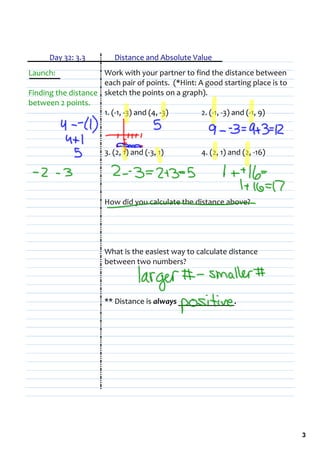 Day 32: 3.3 Distance and Absolute Value
Launch:
Finding the distance
between 2 points.
Work with your partner to find the distance between
each pair of points.  (*Hint: A good starting place is to
sketch the points on a graph).
1. (-1, -3) and (4, -3) 2. (-1, -3) and (-1, 9)
4 - -(1) 5 9 - -3 = 9+3=12
4+1
5
3. (2, 1) and (-3, 1) 4. (2, 1) and (2, -16)
-2 - 3 2 - -3 = 2+3=5 1 + +16=
1+16=17
How did you calculate the distance above?
What is the easiest way to calculate distance
between two numbers?
larger # - smaller #
** Distance is always positive.
3